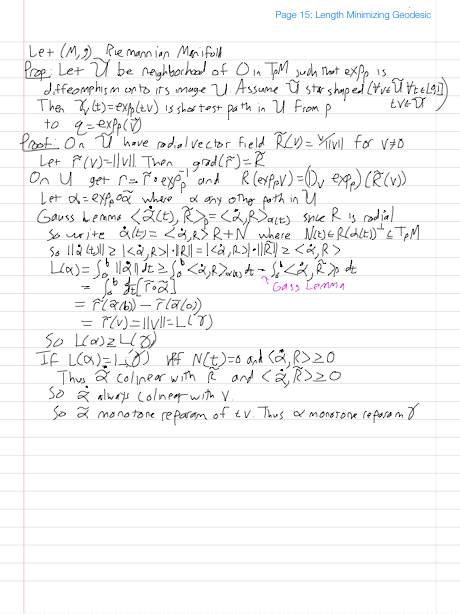 Page 15: Length Minimizing Geodesic
Let (M,g) Riemannian Manifold
Prop: Let Ũ be neighborhood of O in TpM such that expp is
diffeomorphism onto its image U. Assume Ũ star shaped (∀v∈Ũ ∀t∈[0,1]
tv∈Ũ)
Then γv(t)=expp(tv) is shortest path in U from p
to q=expp(v)
Proof: On Ũ have radial vector field R̃(v)=v/||v|| for v≠0
Let r̃(v)=||v||. Then grad(r̃)=R̃
On U get r=r̃∘expp⁻¹ and R(exppv)=(Dv expp)(R̃(v))
Let α=expp∘α̃ where α any other path in U
Gauss Lemma <α̃̇(t),R̃>p=<α̇,R>α(t) since R is radial
So write α̇(t)=<α̇,R>R+N where N(t)∈R(α(t))⊥⊆TpM
So ||α̇(t)||≥|<α̇,R>|·||R||=|<α̇,R>|·||R̃||≥<α̇,R>
L(α)=∫₀ᵇ||α̇||dt≥∫₀ᵇ<α̇,R>α(t)dt=∫₀ᵇ<α̃̇,R̃>p dt
Gass Lemma
=∫₀ᵇ d/dt[r̃∘α̃]
=r̃(α̃(b))-r̃(α̃(0))
=r̃(v)=||v||=L(γ)
So L(α)≥L(γ)
If L(α)=L(γ) iff N(t)=0 and <α̇,R>≥0
Thus α̃̇ colinear with R̃ and <α̇,R>≥0
So α̃̇ always colinear with v.
So α̃ monotone reparam of tv. Thus α monotone reparam γ